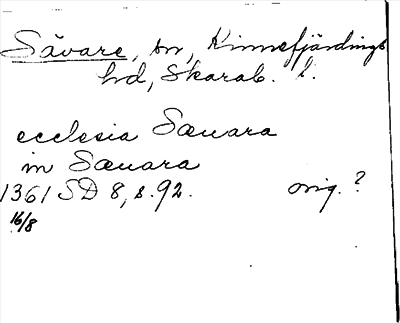 Sävare, sn, Kinnefjärdings
hd, Skarab. l.
ecclesia Sæuara
in Sæuara
1361 SD 8, s. 92. orig.?
16/8